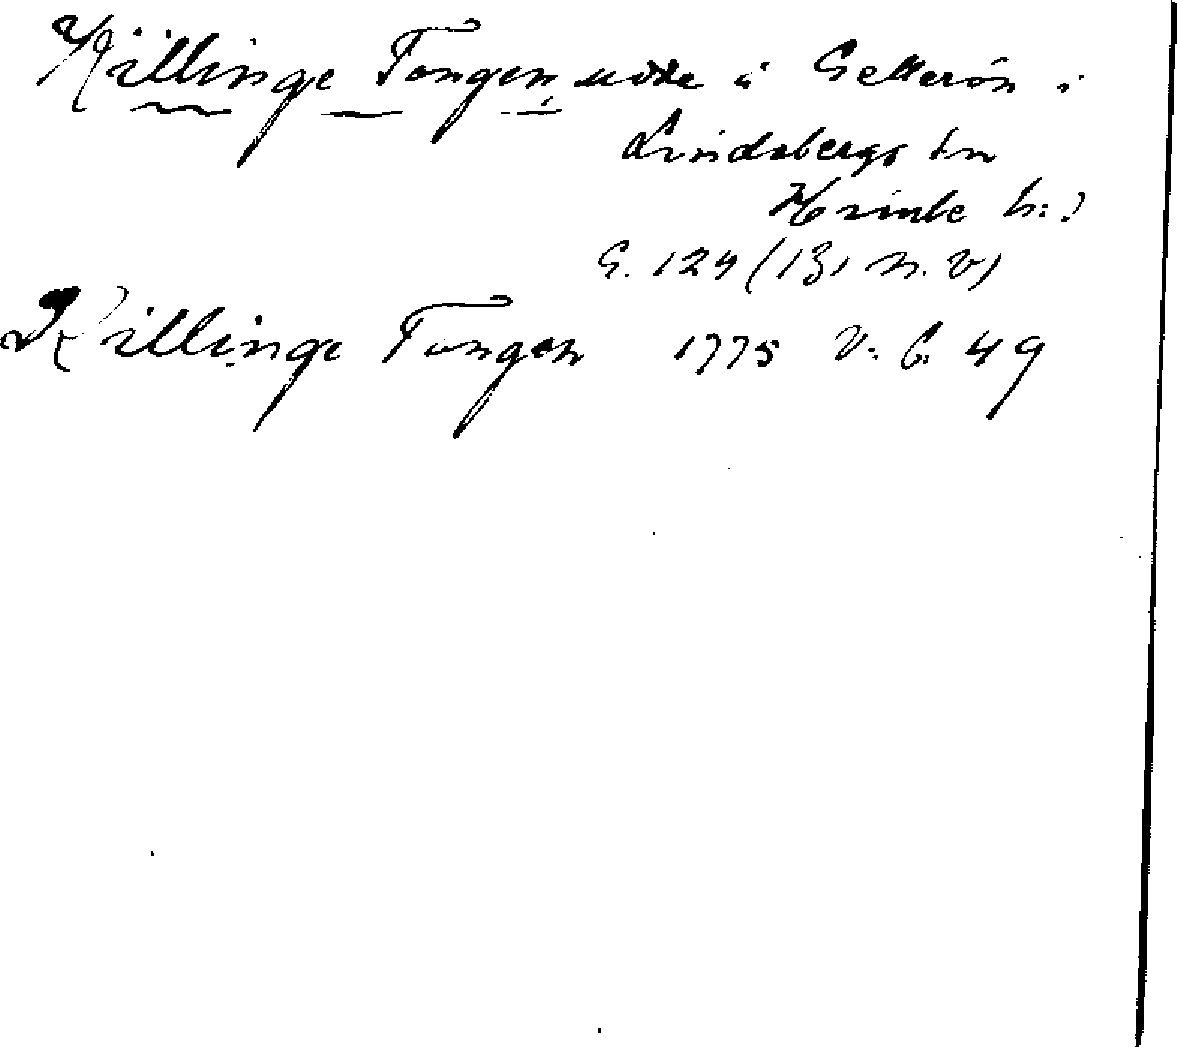 Killinge Tongen, udde å Getterön i
Lindebergs sn
Himle h:d
G. 124 (13, N. V)
Killinge Tongen 1775 V: 6. 49